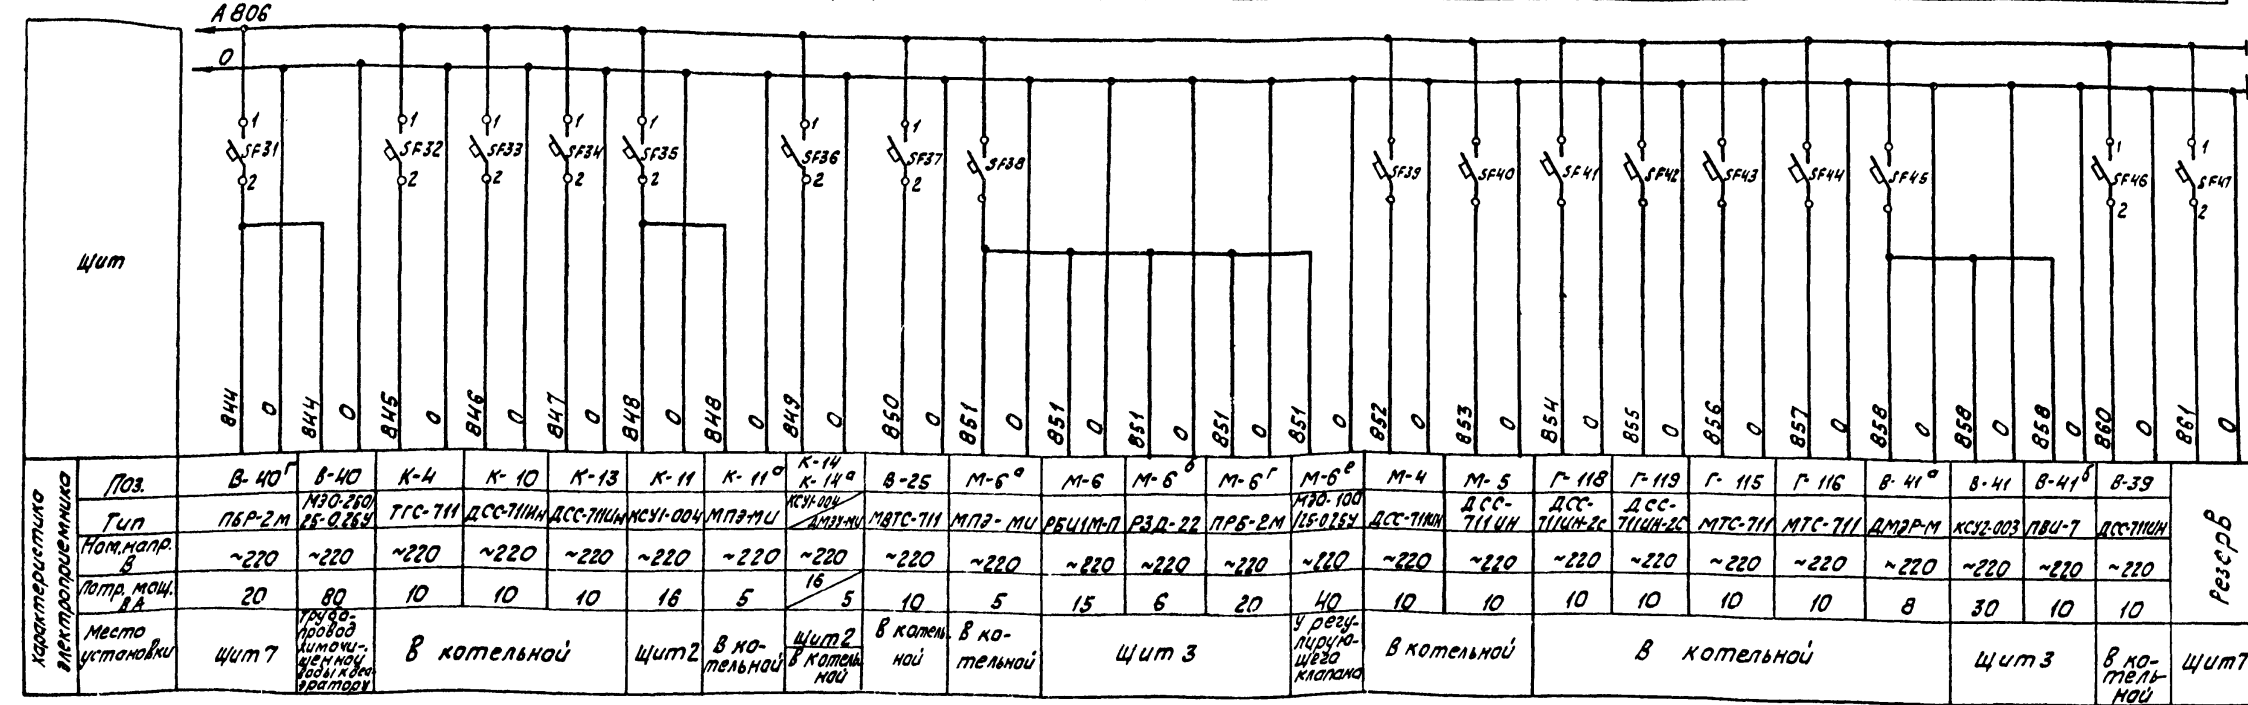 А806
0
1 1 1 1 1 1 1 1 1
SF31 SF32 SF33 SF34 SF35 SF36 SF37 SF38 SF39 SF40 SF41 SF42 SF43 SF44 SF45 SF46 SF47
2 2 2 2 2 2 2 2 2
Щит
844 0 844 0 845 0 846 0 847 0 848 0 848 0 849 0 850 0 851 0 851 0 851 0 851 0 851 0 852 0 853 0 854 0 855 0 856 0 857 0 858 0 858 0 858 0 860 0 861 0
Характеристика электроприемника
Поз. В-40г В-40 К-4 К-10 К-13 К-11 К-11а К-14 К-14а В-25 М-6а М-6 М-6в М-6г М-6е М-4 М-5 Г-118 Г-119 Г-115 Г-116 В-41а В-41 В-41б В-39
Тип ПБР-2М МЭО-250/25-0.25У ТГС-711 ДСС-711Ин ДСС-711Ин КСУ1-004 МПЭ-МИ КСУ1-004 ДМЭУ-МИ МВТС-711 МПЭ-МИ РБИ1М-П РЗД-22 ПРБ-2М МЭО-100/25-0.25У ДСС-711ИН ДСС-711ИН ДСС-711ИН-2С ДСС-711ИН-2С МТС-711 МТС-711 ДМЭР-М КСУ2-003 ПВИ-7 ДСС-711ИН
Ном. напр. В ~220 ~220 ~220 ~220 ~220 ~220 ~220 ~220 ~220 ~220 ~220 ~220 ~220 ~220 ~220 ~220 ~220 ~220 ~220 ~220 ~220 ~220 ~220 ~220
Потр. мощ. ВА 20 80 10 10 10 16 5 16 5 10 5 15 6 20 40 10 10 10 10 10 10 8 30 10 10
Резерв
Место установки Щит 7 Трубопровод химочищенной воды к деаэратору В котельной Щит 2 В котельной Щит 2 В котельной В котельной В котельной Щит 3 У регулирующего клапана В котельной В котельной Щит 3 В котельной Щит 7